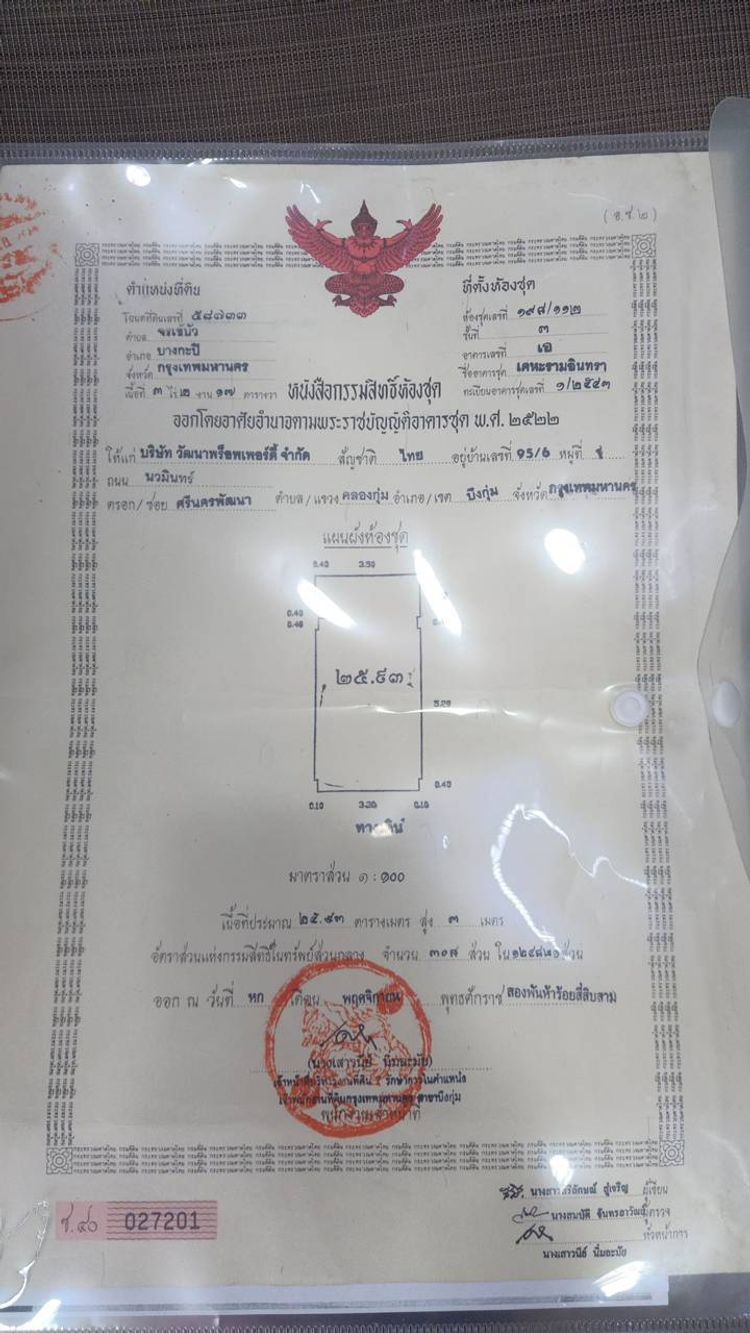 (อ.ช.๒)
ตำแหน่งที่ดิน
โฉนดที่ดินเลขที่ ๕๘๗๓๓
ตำบล จรเข้บัว
อำเภอ บางกะปิ
จังหวัด กรุงเทพมหานคร
เนื้อที่ ๓ ไร่ ๒ งาน ๑๗ ตารางวา
ที่ตั้งห้องชุด
ห้องชุดเลขที่ ๑๙๘/๑๑๒
ชั้นที่ ๓
อาคารเลขที่ เอ
ชื่ออาคารชุด เคหะรามอินทรา
ทะเบียนอาคารชุดเลขที่ ๑/๒๕๔๓
หนังสือกรรมสิทธิ์ห้องชุด
ออกโดยอาศัยอำนาจตามพระราชบัญญัติอาคารชุด พ.ศ. ๒๕๒๒
ให้แก่ บริษัท วัฒนาพร็อพเพอร์ตี้ จำกัด สัญชาติ ไทย อยู่บ้านเลขที่ 95/6 หมู่ที่
ถนน นวมินทร์
ตรอก/ซอย ศรีนครพัฒนา ตำบล/แขวง คลองกุ่ม อำเภอ/เขต บึงกุ่ม จังหวัด กรุงเทพมหานคร
แผนผังห้องชุด
0.40 3.50
0.40
0.40
๒๕.๙๓
5.20
0.40
0.10 3.30 0.10
มาตราส่วน ๑ : ๑๐๐
เนื้อที่ประมาณ ๒๕.๙๓ ตารางเมตร สูง ๓ เมตร
อัตราส่วนแห่งกรรมสิทธิ์ในทรัพย์ส่วนกลาง จำนวน ๓๐๘ ส่วน ใน ส่วน
ออก ณ วันที่ หก เดือน พฤศจิกายน พุทธศักราช สองพันห้าร้อยสี่สิบสาม
(นางเสาวนีย์ นิ่มนะมัย)
เจ้าหน้าที่บริหารงานที่ดิน รักษาการในตำแหน่ง
เจ้าพนักงานที่ดินกรุงเทพมหานคร สาขาบึงกุ่ม
พนักงานเจ้าหน้าที่
ช.๔๐ 027201
นางสาวศิริลักษณ์ ผู้เขียน
นางสมบัติ ผู้ตรวจ
หัวหน้าการ
นางเสาวนีย์ นิ่มนะมัย